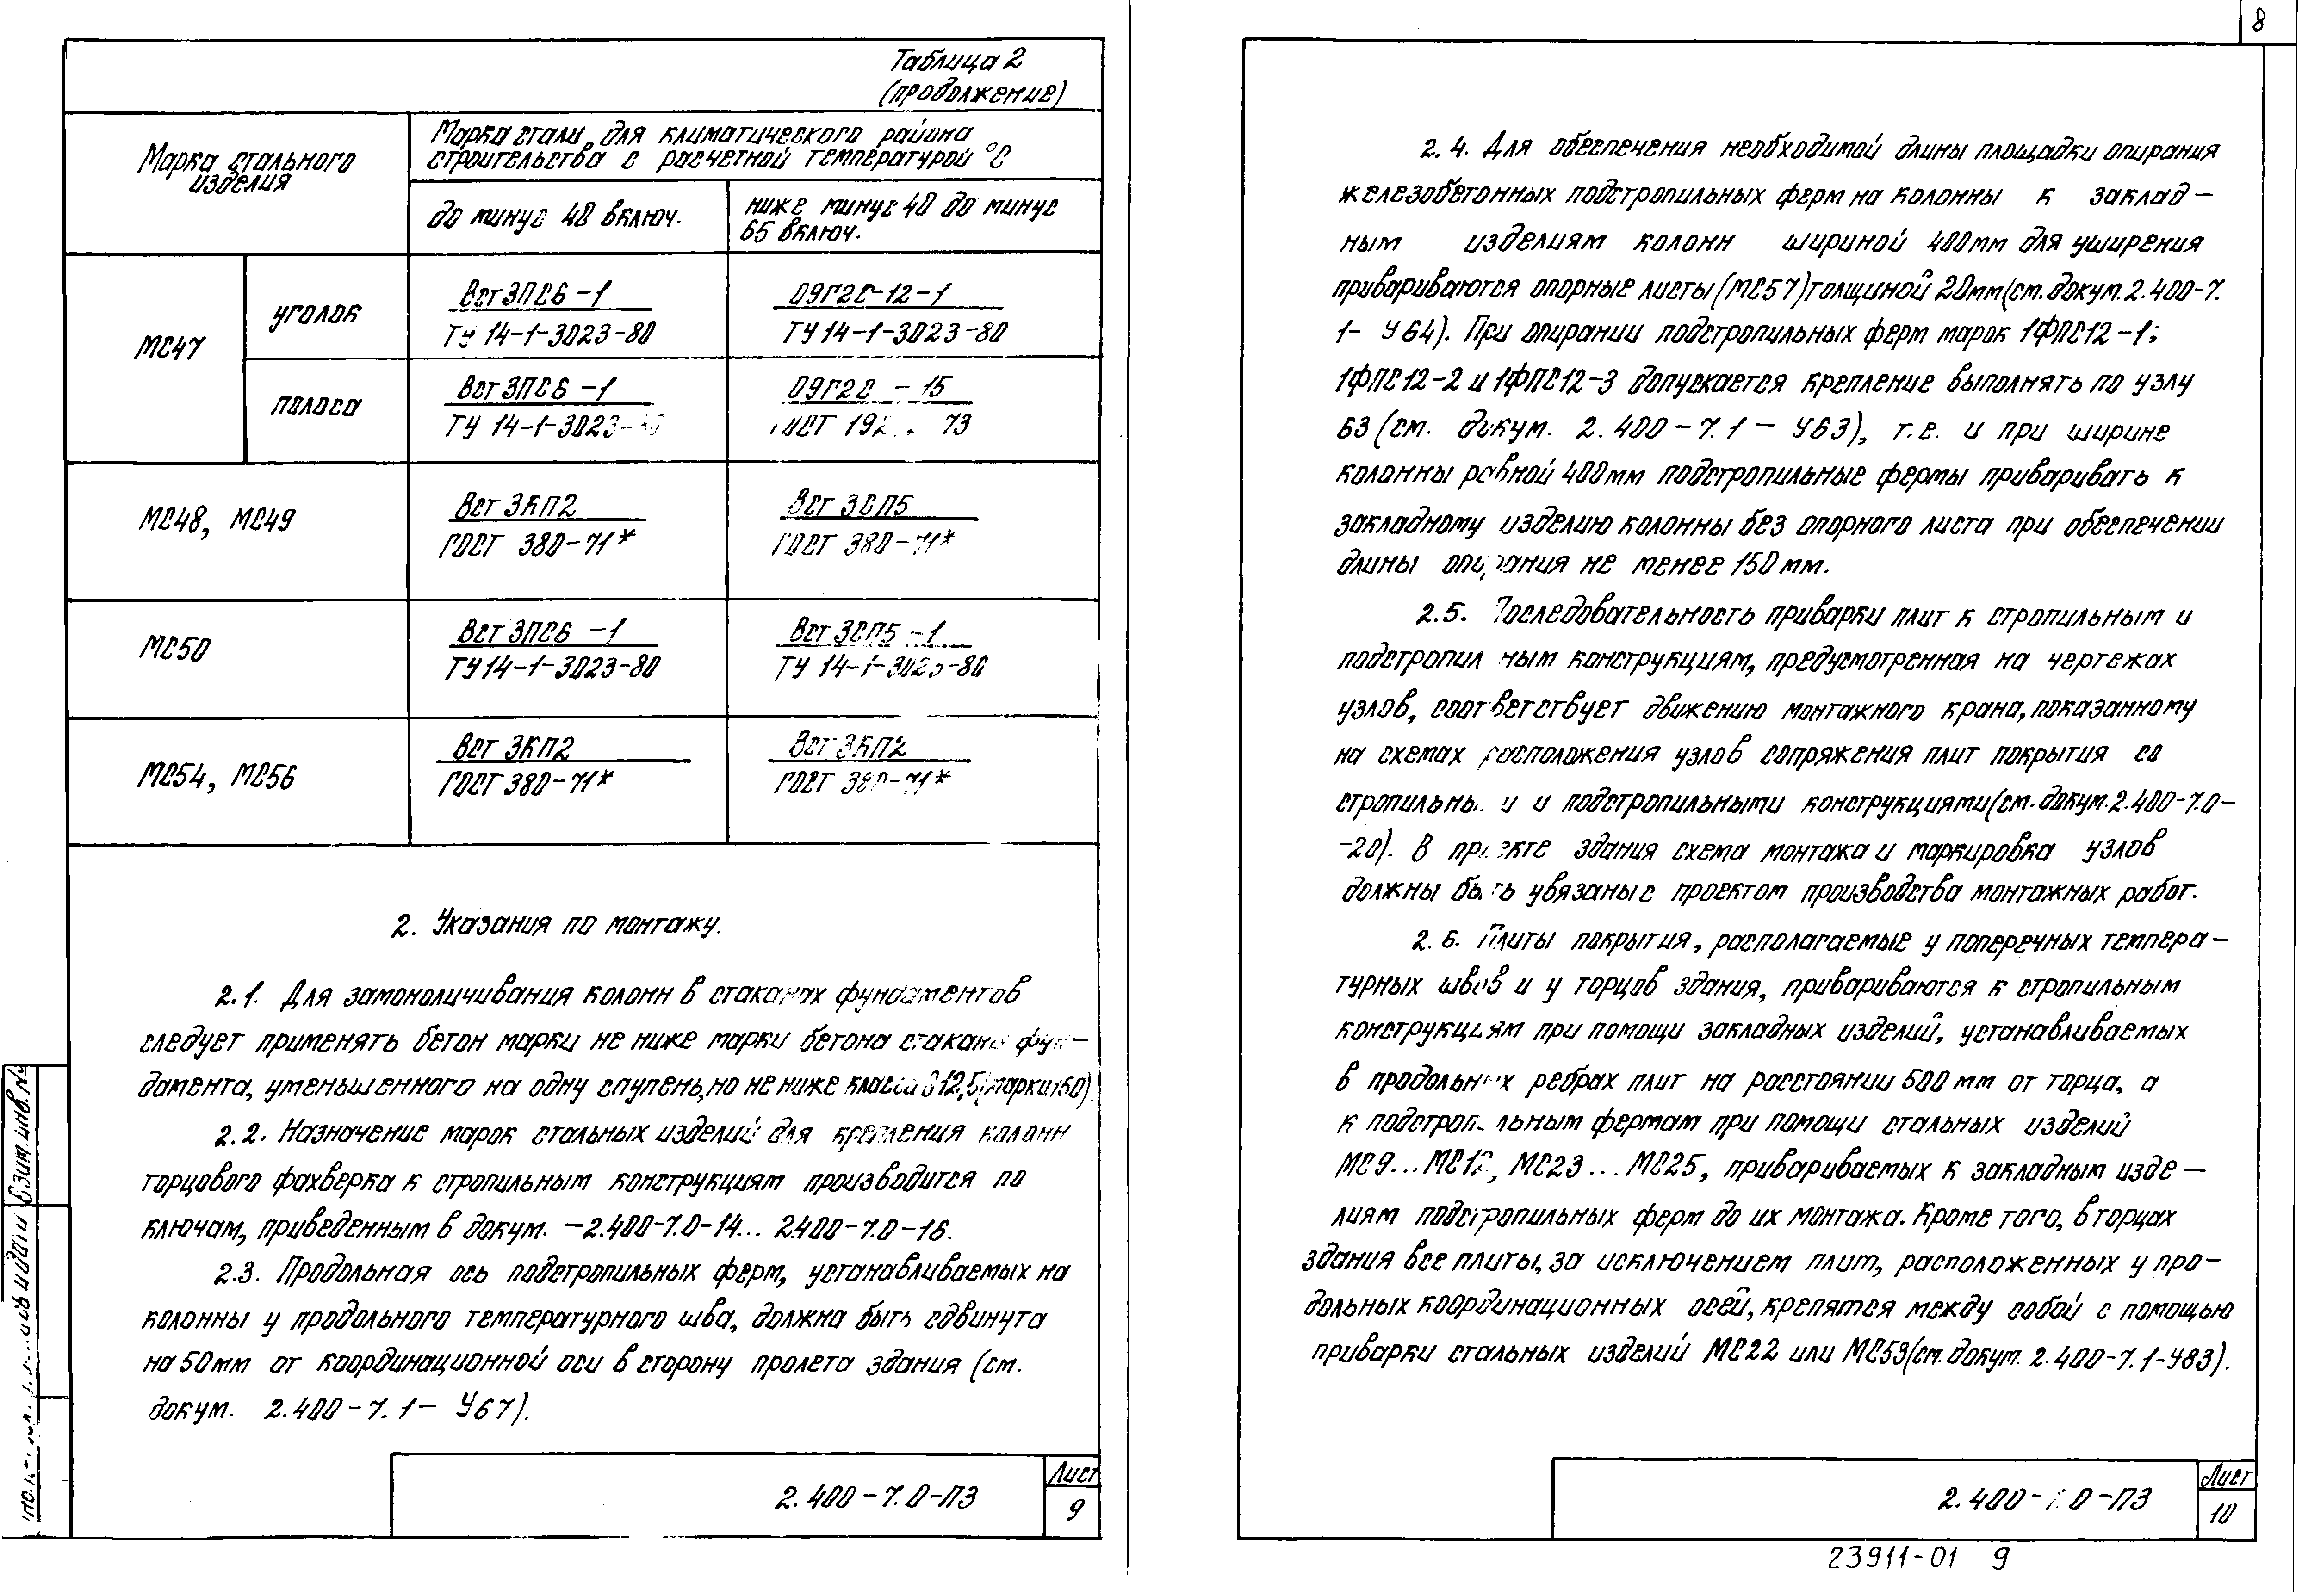 Таблица 2
(продолжение)
Марка стального
изделия
Марка стали для климатического района
строительства с расчетной температурой °С
до минус 40 включ.
ниже минус 40 до минус
65 включ.
МС47
уголок
ВСт3ПС6-1
ТУ 14-1-3023-80
09Г2С-12-1
ТУ 14-1-3023-80
полоса
ВСт3ПС6-1
ТУ 14-1-3023-
09Г2С - 15
73
МС48, МС49
ВСт3КП2
ГОСТ 380-71*
ВСт3СП5
ГОСТ 380-71*
МС50
ВСт3ПС6-1
ТУ 14-1-3023-80
ВСт3СП5-1
ТУ 14-1-3023-80
МС54, МС56
ВСт3КП2
ГОСТ 380-71*
ВСт3КП2
ГОСТ 380-71*
2. Указания по монтажу.
2.1. Для замоноличивания колонн в стаканах фундаментов
следует применять бетон марки не ниже марки бетона стакана фун-
дамента, уменьшенного на одну ступень, но не ниже класса В12,5(марки 150).
2.2. Назначение марок стальных изделий для крепления колонн
торцового фахверка к стропильным конструкциям производится по
ключам, приведенным в докум. -2.400-7.0-14... 2.400-7.0-16.
2.3. Продольная ось подстропильных ферм, устанавливаемых на
колонны у продольного температурного шва, должна быть сдвинута
на 50мм от координационной оси в сторону пролета здания (см.
докум. 2.400-7.1- У67).
2.400-7.0-ПЗ
Лист
9
8
2.4. Для обеспечения необходимой длины площадки опирания
железобетонных подстропильных ферм на колонны к заклад-
ным изделиям колонн шириной 400мм для уширения
привариваются опорные листы (МС57) толщиной 20мм(см. докум. 2.400-7.
1- У64). При опирании подстропильных ферм марок 1ФПС12-1;
1ФПС12-2 и 1ФПС12-3 допускается крепление выполнять по узлу
63 (см. докум. 2.400-7.1- У63), т.е. и при ширине
колонны равной 400мм подстропильные фермы приваривать к
закладному изделию колонны без опорного листа при обеспечении
длины опирания не менее 150мм.
2.5. Последовательность приварки плит к стропильным и
подстропильным конструкциям, предусмотренная на чертежах
узлов, соответствует движению монтажного крана, показанному
на схемах расположения узлов сопряжения плит покрытия со
стропильными и подстропильными конструкциями(см. докум. 2.400-7.0-
-20). В проекте здания схема монтажа и маркировка узлов
должны быть увязаны с проектом производства монтажных работ.
2.6. Плиты покрытия, располагаемые у поперечных темпера-
турных швов и у торцов здания, привариваются к стропильным
конструкциям при помощи закладных изделий, устанавливаемых
в продольных ребрах плит на расстоянии 500мм от торца, а
к подстропильным фермам при помощи стальных изделий
МС9...МС12, МС23...МС25, привариваемых к закладным изде-
лиям подстропильных ферм до их монтажа. Кроме того, в торцах
здания все плиты, за исключением плит, расположенных у про-
дольных координационных осей, крепятся между собой с помощью
приварки стальных изделий МС22 или МС53(см. докум. 2.400-7.1-У83).
2.400- .0-ПЗ
Лист
10
23911-01 9
Взим. инв. №